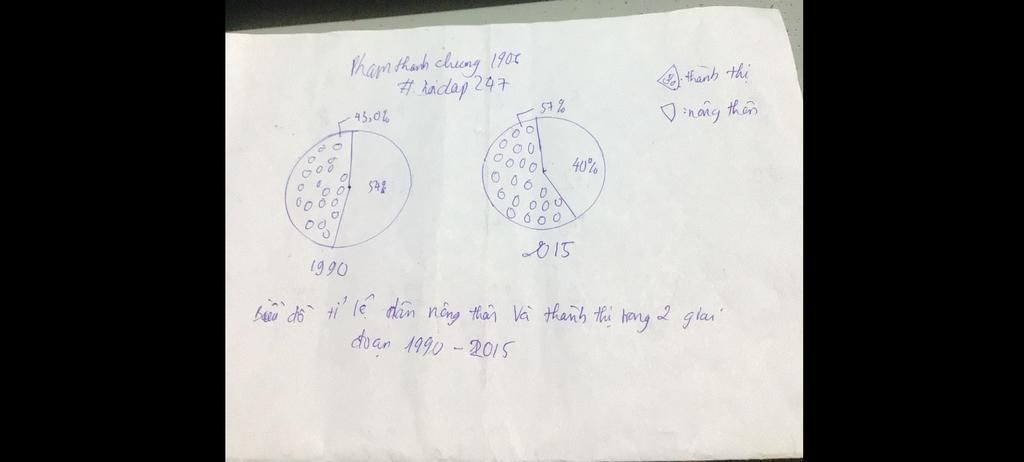 Phạm thanh chung 1906
# hoidap 247
: thành thị
: nông thôn
43,0%
57%
1990
57%
40%
2015
Biểu đồ tỉ lệ dân nông thôn và thành thị trong 2 giai
đoạn 1990 - 2015